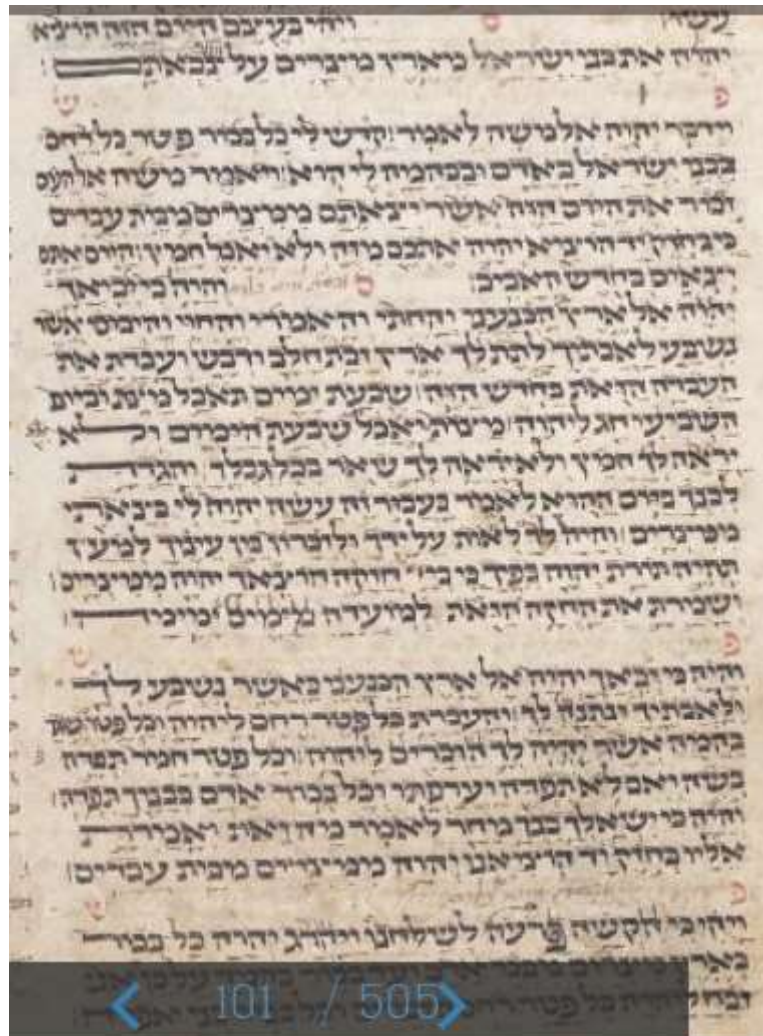 עשו׃ ס ויהי בעצם היום הזה הוציא
יהוה את בני ישראל מארץ מצרים על צבאתם׃
פ ש
וידבר יהוה אל משה לאמר׃ קדש לי כל בכור פטר כל רחם
בבני ישראל באדם ובבהמה לי הוא׃ ויאמר משה אל העם
זכור את היום הזה אשר יצאתם ממצרים מבית עבדים
כי בחזק יד הוציא יהוה אתכם מזה ולא יאכל חמץ׃ היום אתם
יצאים בחדש האביב׃ ס והיה כי יביאך
יהוה אל ארץ הכנעני והחתי והאמרי והחוי והיבוסי אשר
נשבע לאבתיך לתת לך ארץ זבת חלב ודבש ועבדת את
העבדה הזאת בחדש הזה׃ שבעת ימים תאכל מצת וביום
השביעי חג ליהוה׃ מצות יאכל שבעת הימים ולא
יראה לך חמץ ולא יראה לך שאר בכל גבלך׃ והגדת
לבנך ביום ההוא לאמר בעבור זה עשה יהוה לי בצאתי
ממצרים׃ והיה לך לאות על ידך ולזכרון בין עיניך למען
תהיה תורת יהוה בפיך כי ביד חזקה הוצאך יהוה ממצרים׃
ושמרת את החקה הזאת למועדה מימים ימימה׃
פ ש
והיה כי יבאך יהוה אל ארץ הכנעני כאשר נשבע לך
ולאבתיך ונתנה לך׃ והעברת כל פטר רחם ליהוה וכל פטר שגר
בהמה אשר יהיה לך הזכרים ליהוה׃ וכל פטר חמר תפדה
בשה ואם לא תפדה וערפתו וכל בכור אדם בבניך תפדה׃
והיה כי ישאלך בנך מחר לאמר מה זאת ואמרת
אליו בחזק יד הוציאנו יהוה ממצרים מבית עבדים׃
פ ש
ויהי כי הקשה פרעה לשלחנו ויהרג יהוה כל בכור
בארץ מצרים
101 / 505